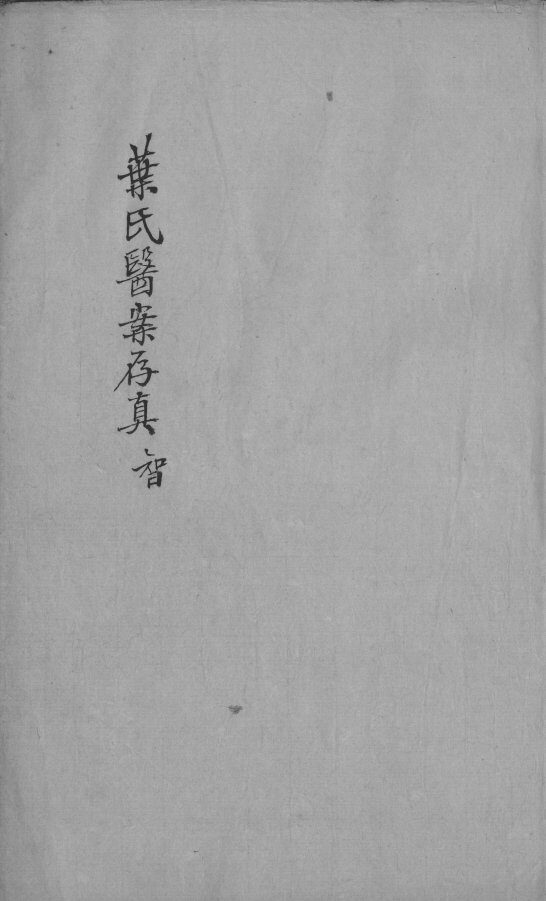 葉氏醫案存真 智